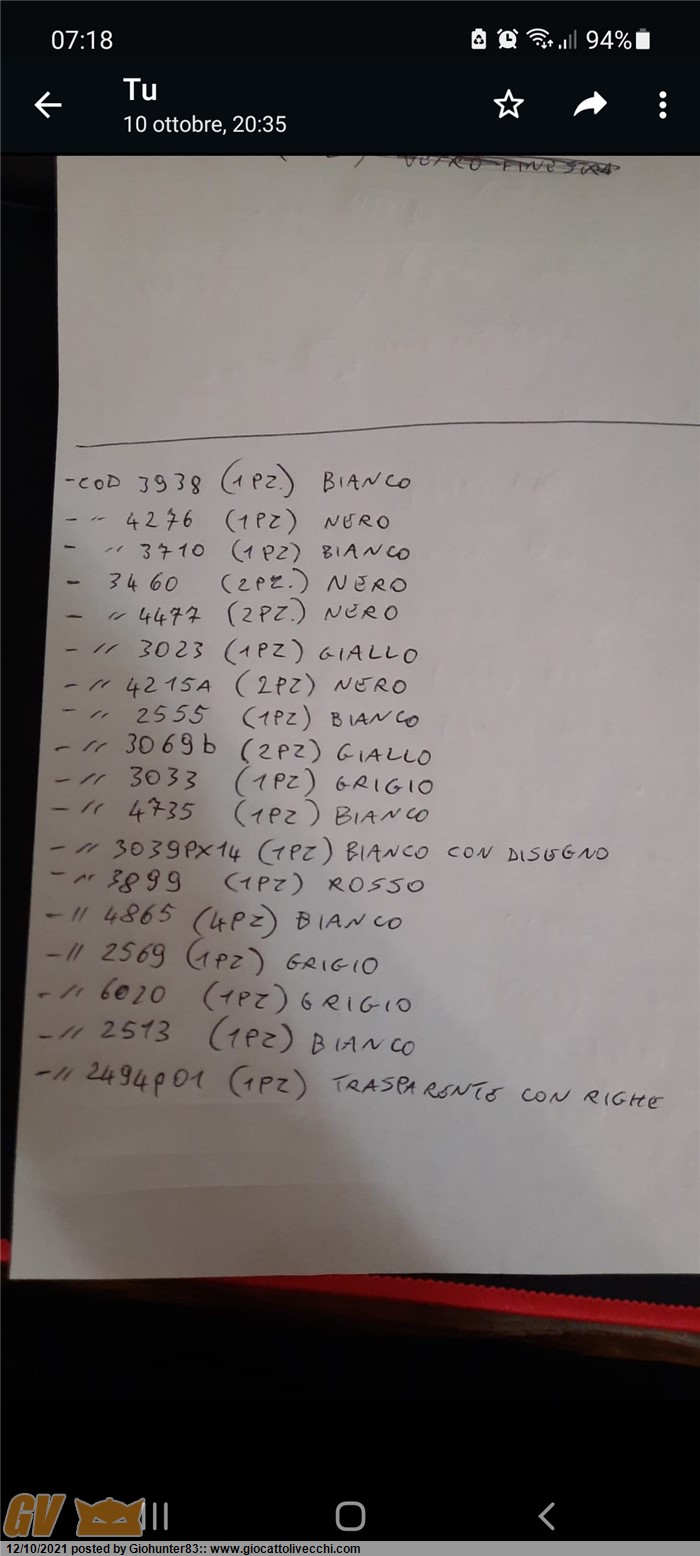 07:18
94%
Tu
10 ottobre, 20:35
VETRO FINESTRA
-COD 3938 (1PZ.) BIANCO
- " 4276 (1PZ) NERO
- " 3710 (1PZ) BIANCO
- 3460 (2PZ.) NERO
- " 4477 (2PZ.) NERO
- " 3023 (1PZ) GIALLO
- " 4215A (2PZ) NERO
- " 2555 (1PZ) BIANCO
- " 3069b (2PZ) GIALLO
- " 3033 (1PZ) GRIGIO
- " 4735 (1PZ) BIANCO
- " 3039PX14 (1PZ) BIANCO CON DISEGNO
- " 3899 (1PZ) ROSSO
- " 4865 (4PZ) BIANCO
- " 2569 (1PZ) GRIGIO
- " 6020 (1PZ) GRIGIO
- " 2513 (1PZ) BIANCO
- " 2494p01 (1PZ) TRASPARENTE CON RIGHE
GV
12/10/2021 posted by Giohunter83:: www.giocattolivecchi.com